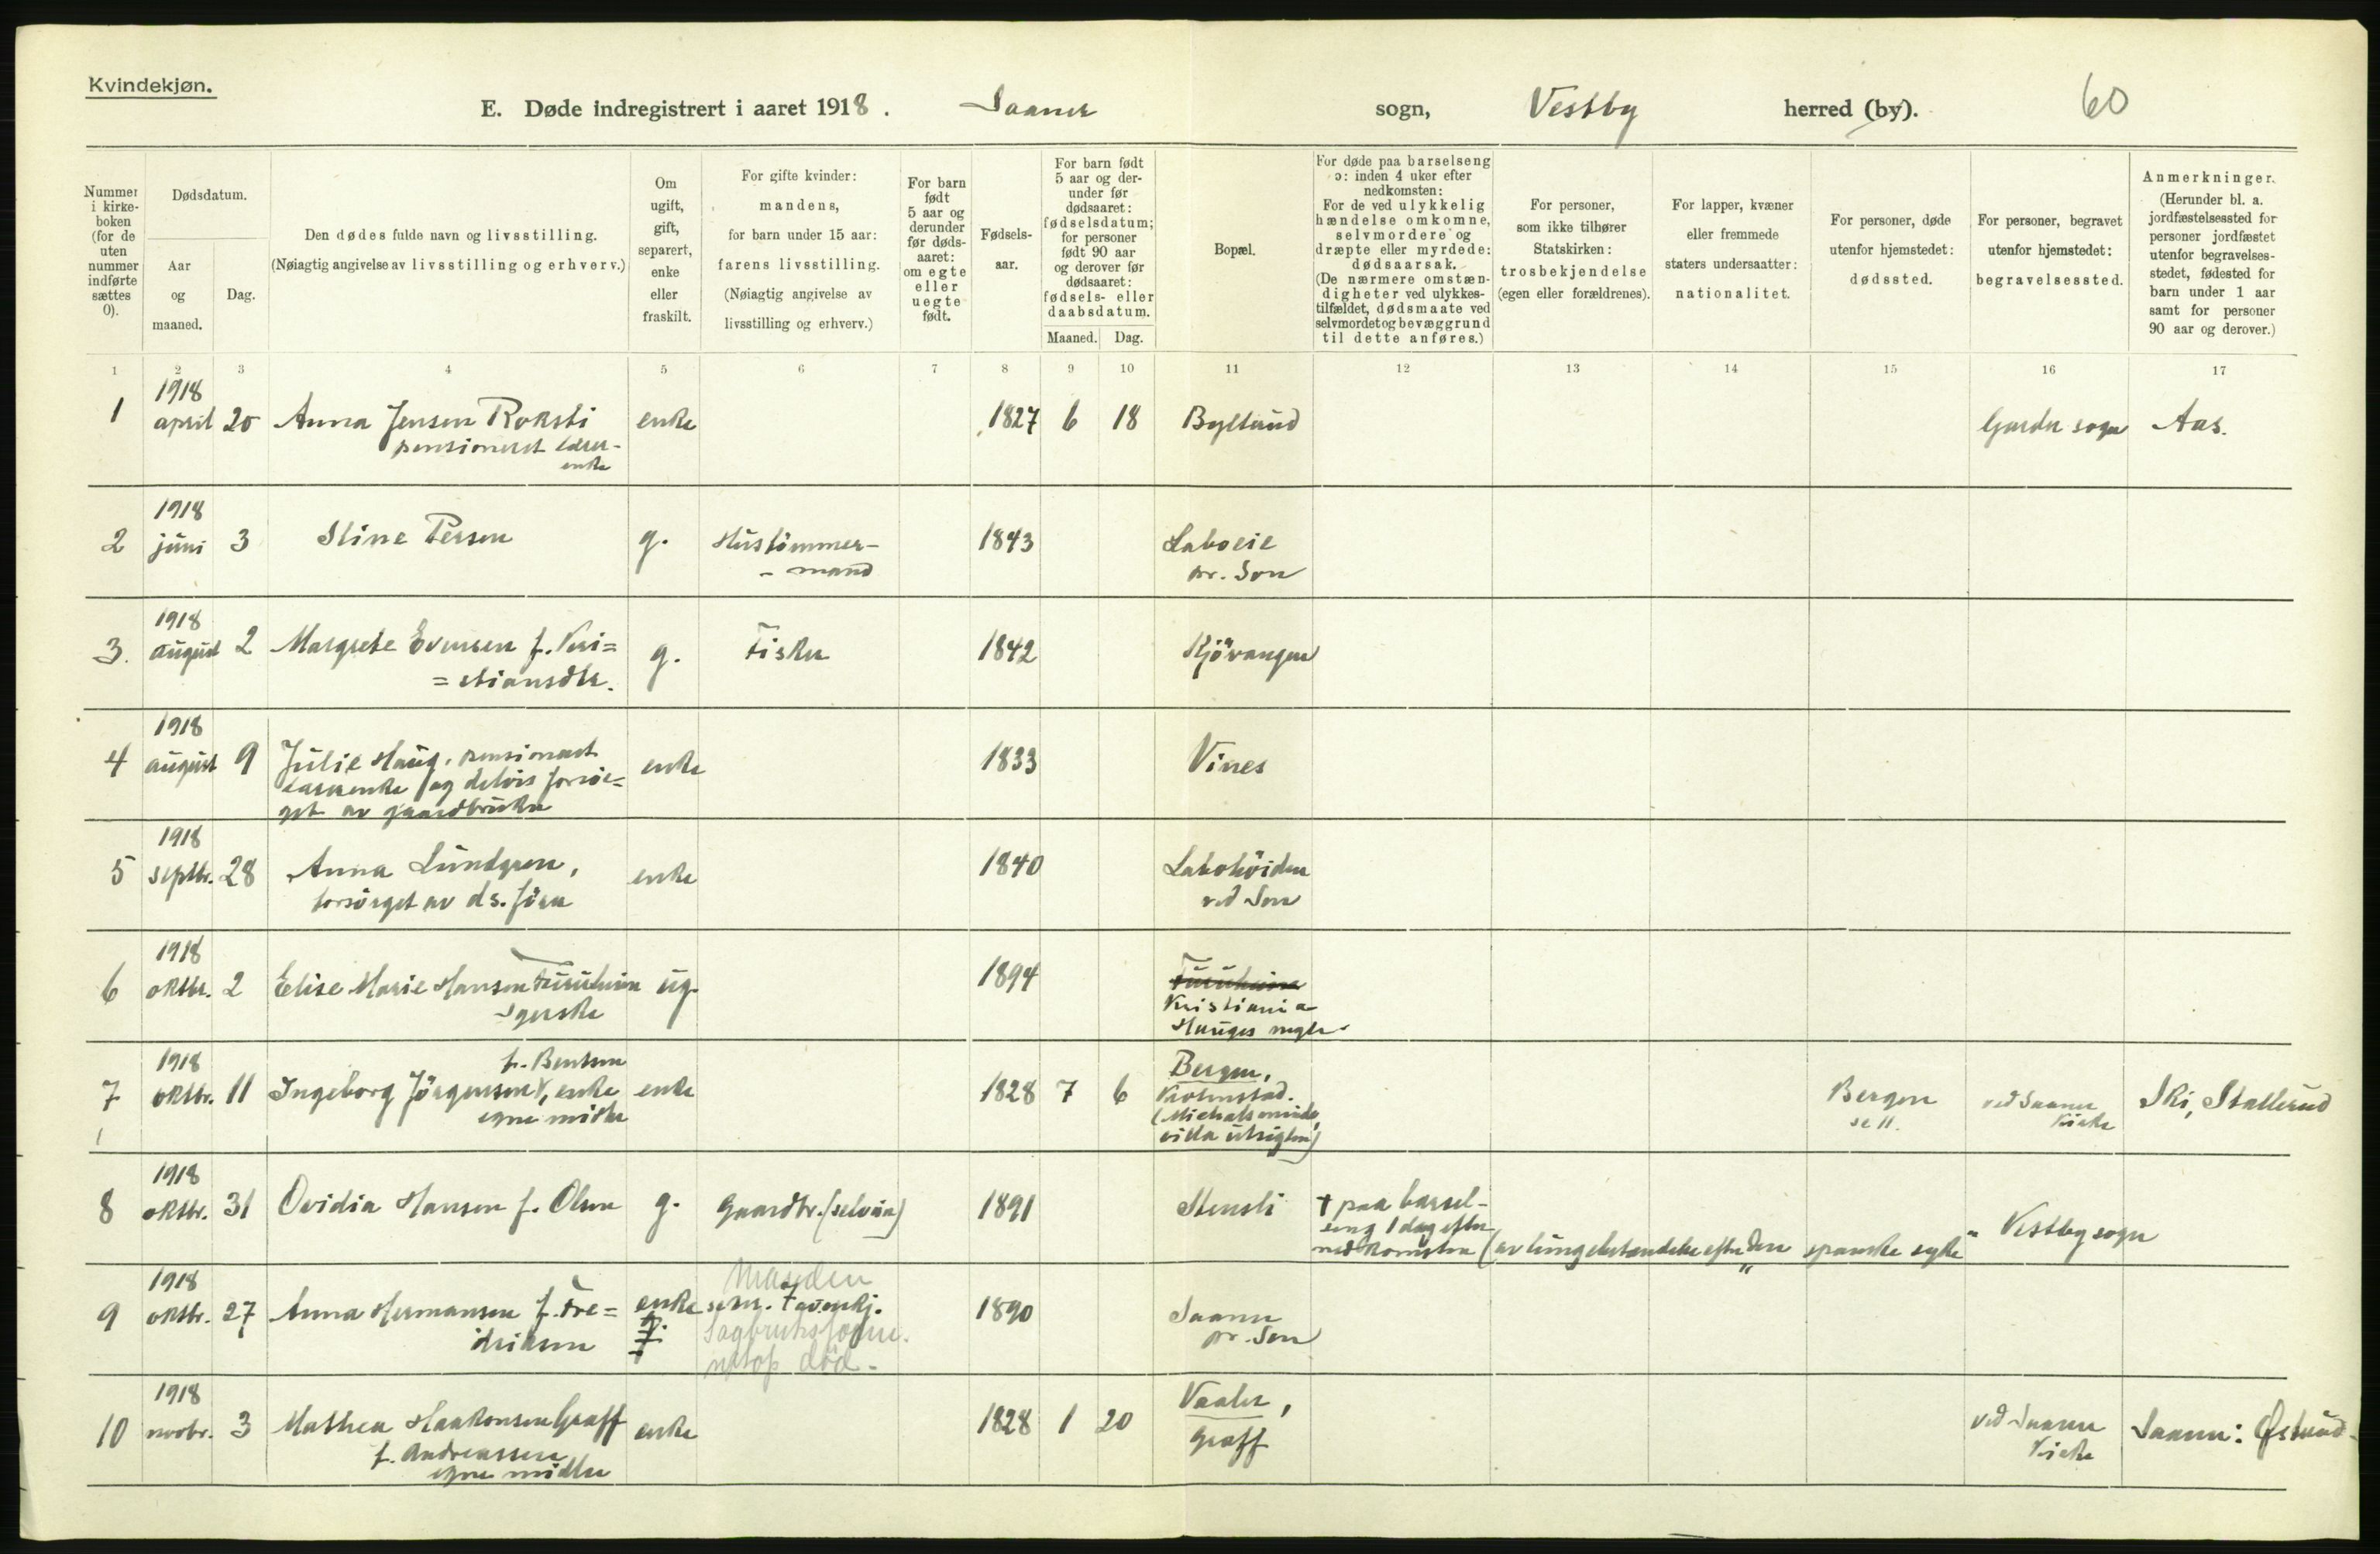 Kvindekjøn.
E. Døde indregistrert i aaret 1918. Saaner sogn, Vestby herred (by). 60
Nummer i kirke-boken (for de uten nummer indførte sættes 0).
Dødsdatum.
Aar og maaned.
Dag.
Den dødes fulde navn og livsstilling.
(Nøiagtig angivelse av livsstilling og erhverv.)
Om ugift, gift, separert, enke eller fraskilt.
For gifte kvinder: mandens, for barn under 15 aar: farens livsstilling.
(Nøiagtig angivelse av livsstilling og erhverv.)
For barn født 5 aar og derunder før døds-aaret: om egte eller uegte født.
Fødsels-aar.
For barn født 5 aar og der-under før dødsaaret: fødselsdatum; for personer født 90 aar og derover før dødsaaret: fødsels- eller daabsdatum.
Maaned. Dag.
Bopæl.
For døde paa barselseng ɔ: inden 4 uker efter nedkomsten:
For de ved ulykkelig hændelse omkomne, selvmordere og dræpte eller myrdede: dødsaarsak.
(De nærmere omstæn-digheter ved ulykkes-tilfældet, dødsmaate ved selvmordet og bevæggrund til dette anføres.)
For personer, som ikke tilhører Statskirken: trosbekjendelse (egen eller forældrenes).
For lapper, kvæner eller fremmede staters undersaatter: nationalitet.
For personer, døde utenfor hjemstedet: dødssted.
For personer, begravet utenfor hjemstedet: begravelsessted.
Anmerkninger.
(Herunder bl. a. jordfæstelsessted for personer jordfæstet utenfor begravelses-stedet, fødested for barn under 1 aar samt for personer 90 aar og derover.)
1 2 3 4 5 6 7 8 9 10 11 12 13 14 15 16 17
1918
1 april 20 Anna Jensen Roksti enke 1827 6 18 Byltund Garder sogn Aas.
pensioneret lærer-
enke
1918
2 juni 3 Stine Person g. Hustømmer- 1843 Laboeie
- mand pr. Son
1918
3. august 2 Margrete Evensen f. Kri= g. Fisker 1842 Kjøvangen
= stiansdtr.
1918
4 august 9 Julie Haug, pensioneret enke 1833 Vines
lærerenke og delvis forsør=
get av gaardbruker
1918
5 septbr. 28 Anna Lundgren, enke 1840 Labohöiden
forsørget av ds. ved Son
1918
6 oktbr. 2 Elise Marie Hansen Furuheim ug. 1894 Furuheim
Syerske Kristiania
Hauges
1918 f. Bentsen Bergen,
7 oktbr. 11 Ingeborg Jörgensen, enke enke 1828 7 6 Bergen ved Saaner Ski, Stallerud
egne midler se 11. Kirke
villa utsigten)
1918
8 oktbr. 31 Ovidia Hansen f. Olsen g. Gaardbr. (selveier) 1891 Stensli † paa barsel- Vestby sogn
seng 1 dag efter
nedkomsten (av lungebetændelse efter "den spanske syke"
1918 Manden
9 oktbr. 27 Anna Hermansen f. Fre= enke 1890 Saaner
driksen g. Sagbruks pr. Son
netop död.
1918
10 novbr. 3 Mathea Haakonsen Graff enke 1828 1 20 Vaaler, ved Saaner Saaner: Østund
f. Andreassen Graff Kirke
egne midler